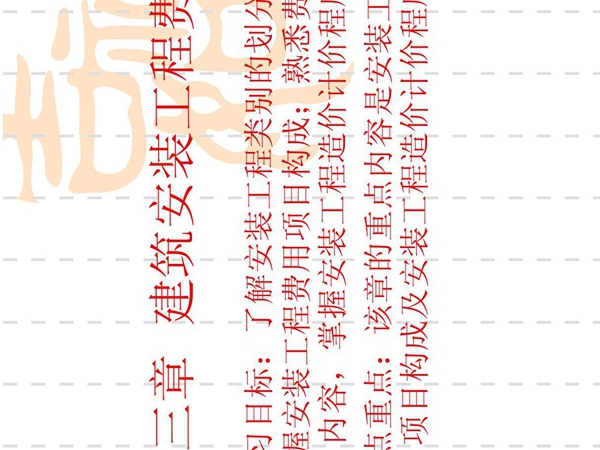 三章 建筑安装工程费
习目标：了解安装工程类别的划分
握安装工程费用项目构成；熟悉费
内容，掌握安装工程造价计价程
点重点：该章的重点内容是安装工
项目构成及安装工程造价计价程